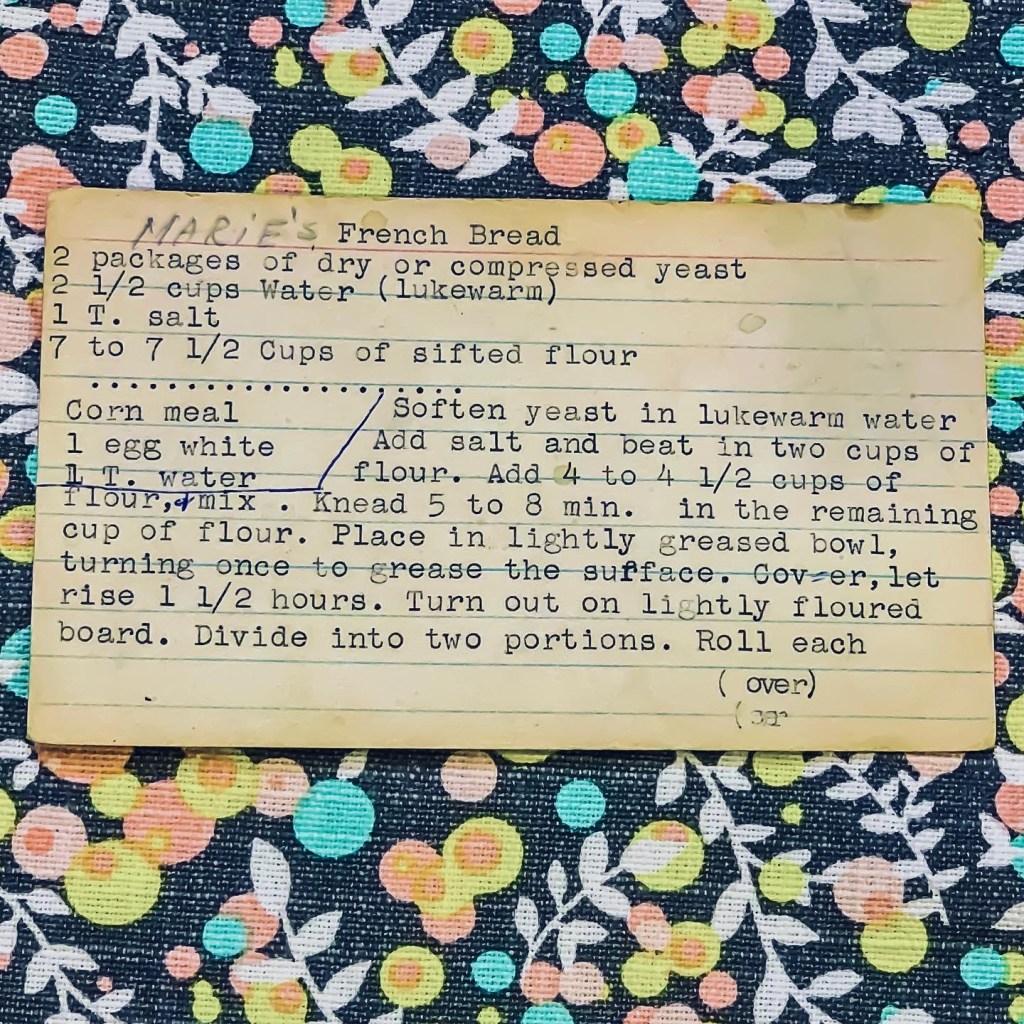 MARIE'S French Bread
2 packages of dry or compressed yeast
2 1/2 cups Water (lukewarm)
1 T. salt
7 to 7 1/2 Cups of sifted flour
....................
Corn meal
1 egg white
1 T. water
Soften yeast in lukewarm water
Add salt and beat in two cups of
flour. Add 4 to 4 1/2 cups of
flour, & mix . Knead 5 to 8 min. in the remaining
cup of flour. Place in lightly greased bowl,
turning once to grease the sufface. Cov-er, let
rise 1 1/2 hours. Turn out on lightly floured
board. Divide into two portions. Roll each
( over)